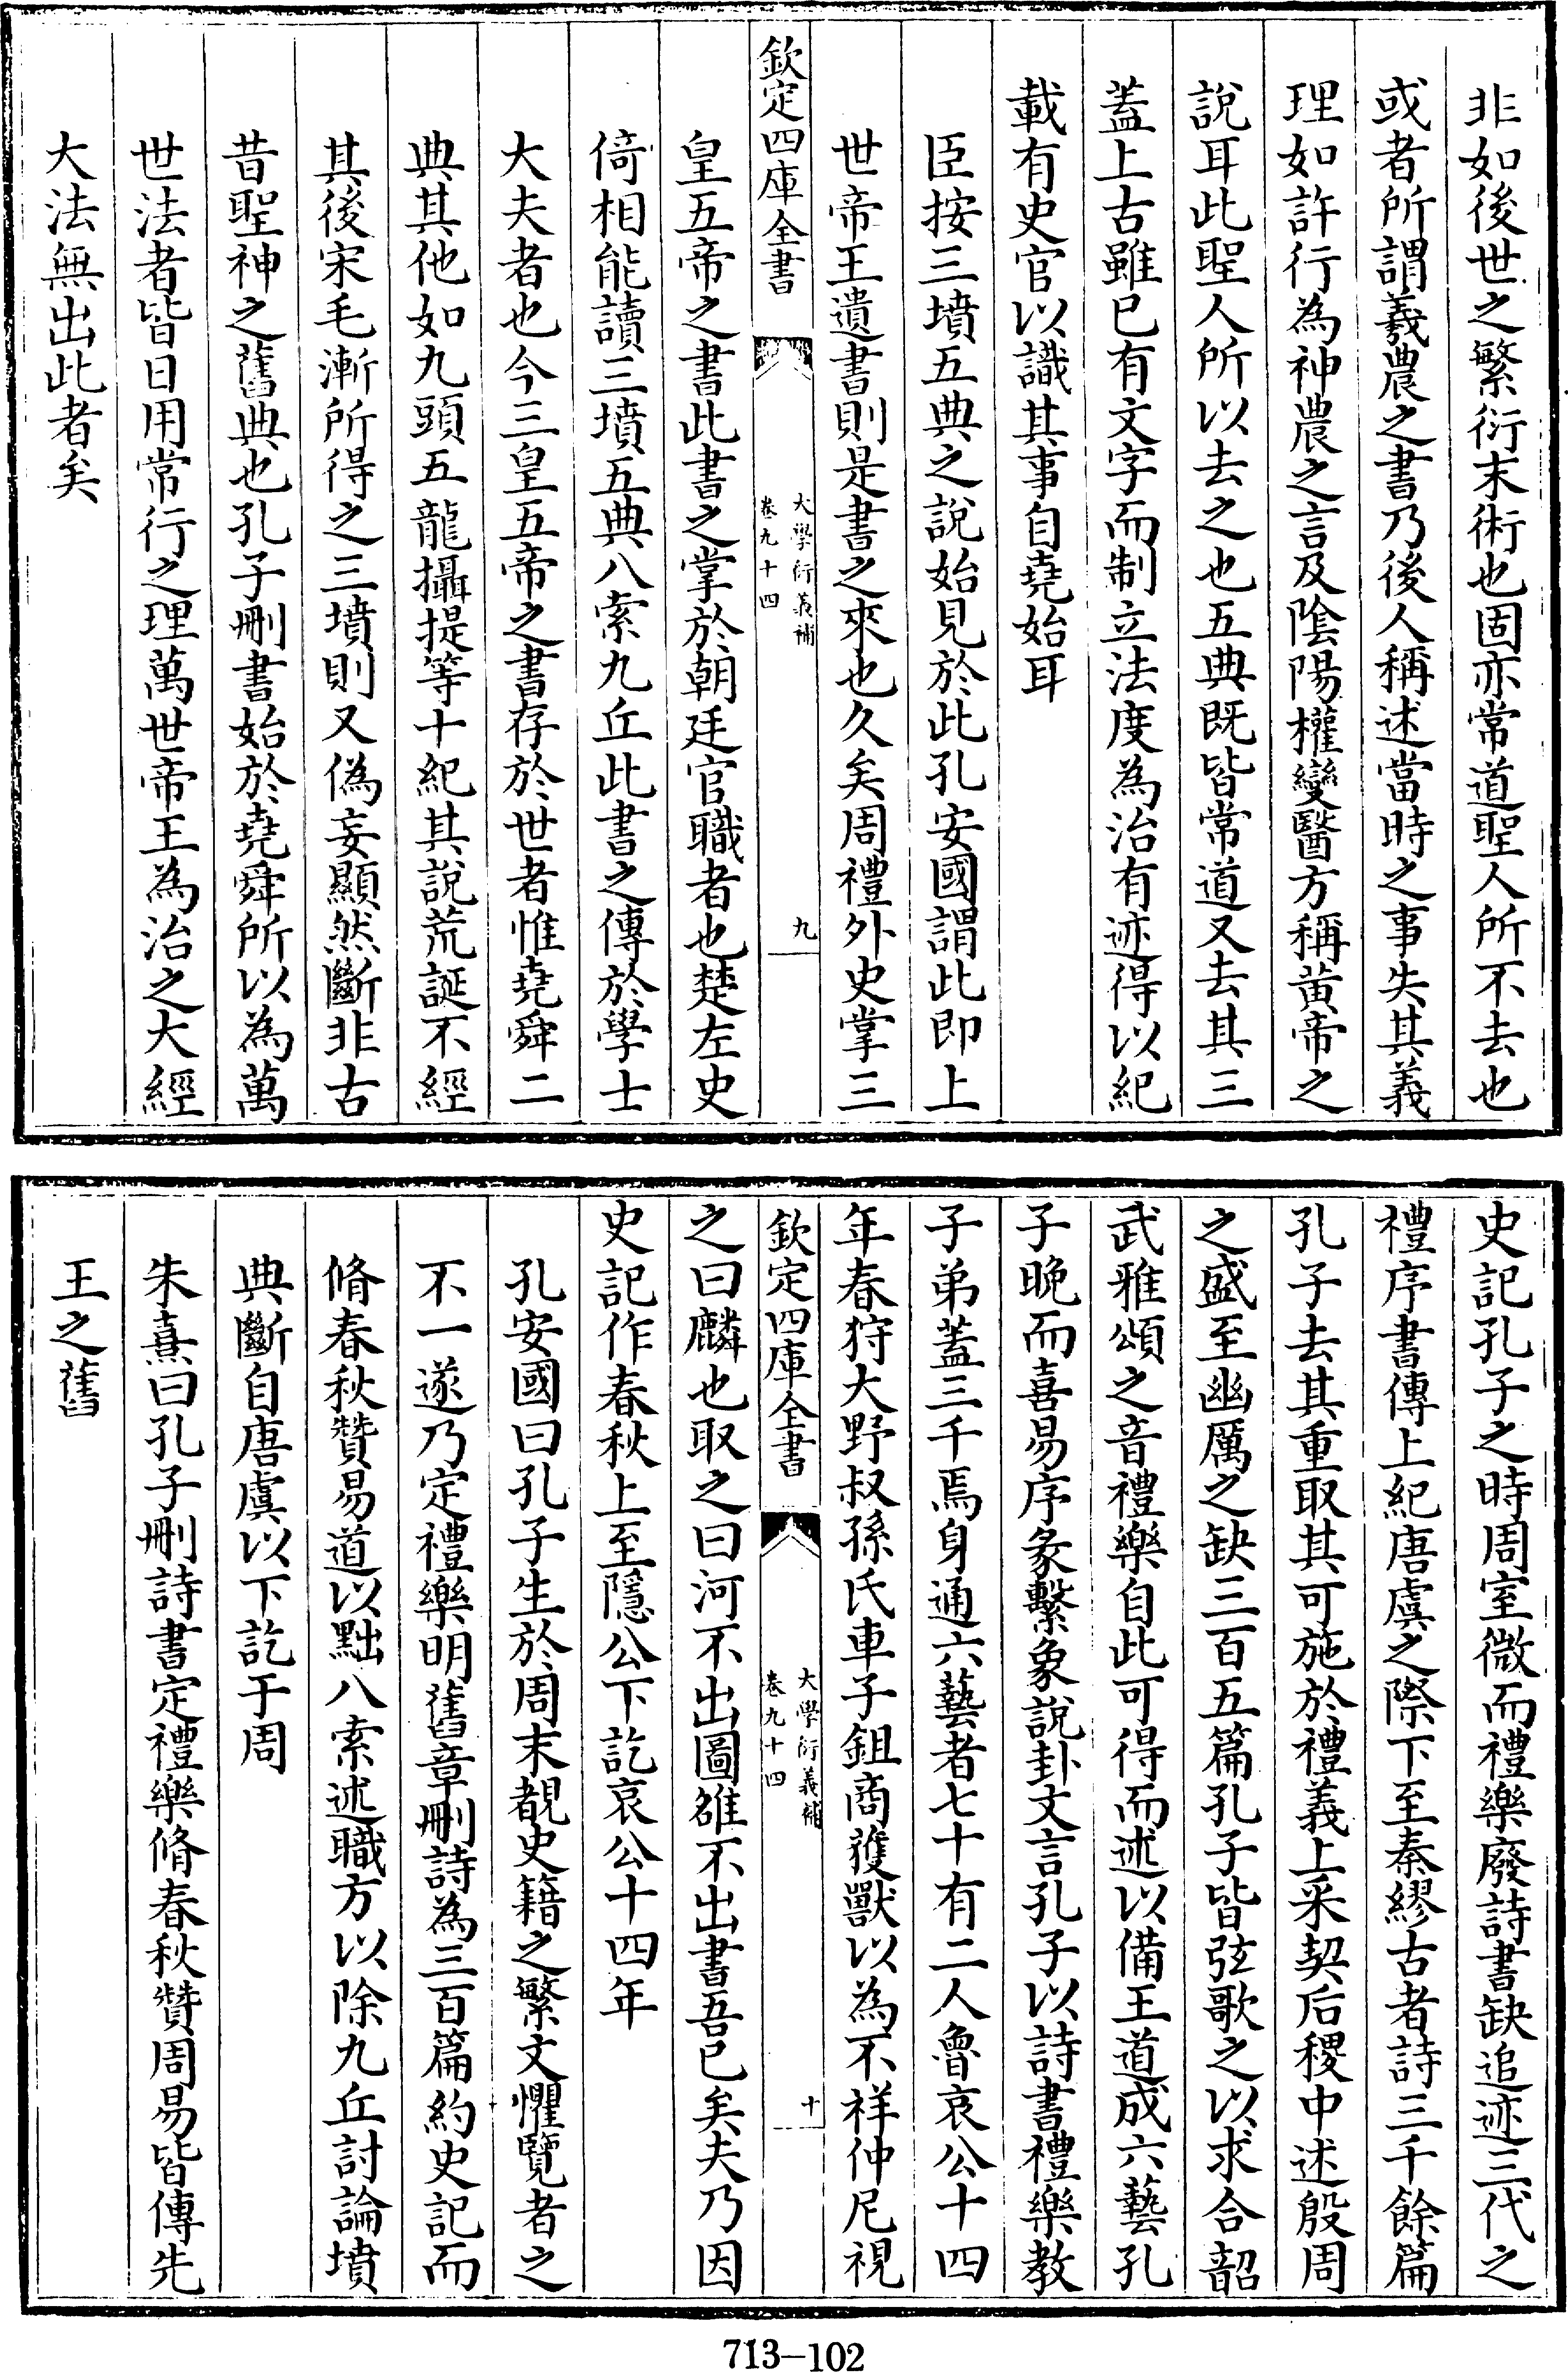 非如後世之繁衍末術也固亦常道聖人所不去也
或者所謂羲農之書乃後人稱述當時之事失其義
理如許行為神農之言及陰陽權變醫方稱黄帝之
說耳此聖人所以去之也五典既皆常道又去其三
蓋上古雖已有文字而制立法度為治有迹得以紀
載有史官以識其事自堯始耳
臣按三墳五典之說始見於此孔安國謂此即上
世帝王遺書則是書之來也久矣周禮外史掌三
欽定四庫全書
大學衍義補
卷九十四
九
皇五帝之書此書之掌於朝廷官職者也楚左史
倚相能讀三墳五典八索九丘此書之傳於學士
大夫者也今三皇五帝之書存於世者惟堯舜二
典其他如九頭五龍攝提等十紀其說荒誕不經
其後宋毛漸所得之三墳則又偽妄顯然斷非古
昔聖神之舊典也孔子刪書始於堯舜所以為萬
世法者皆日用常行之理萬世帝王為治之大經
大法無出此者矣
史記孔子之時周室微而禮樂廢詩書缺追迹三代之
禮序書傳上紀唐虞之際下至秦繆古者詩三千餘篇
孔子去其重取其可施於禮義上采契后稷中述殷周
之盛至幽厲之缺三百五篇孔子皆弦歌之以求合韶
武雅頌之音禮樂自此可得而述以備王道成六藝孔
子晚而喜易序彖繫象說卦文言孔子以詩書禮樂教
子弟蓋三千焉身通六藝者七十有二人魯哀公十四
年春狩大野叔孫氏車子鉏商獲獸以為不祥仲尼視
欽定四庫全書
大學衍義補
卷九十四
十
之曰麟也取之曰河不出圖雒不出書吾已矣夫乃因
史記作春秋上至隱公下訖哀公十四年
孔安國曰孔子生於周末覩史籍之繁文懼覽者之
不一遂乃定禮樂明舊章刪詩為三百篇約史記而
脩春秋贊易道以黜八索述職方以除九丘討論墳
典斷自唐虞以下訖于周
朱熹曰孔子刪詩書定禮樂脩春秋贊周易皆傳先
王之舊
713-102